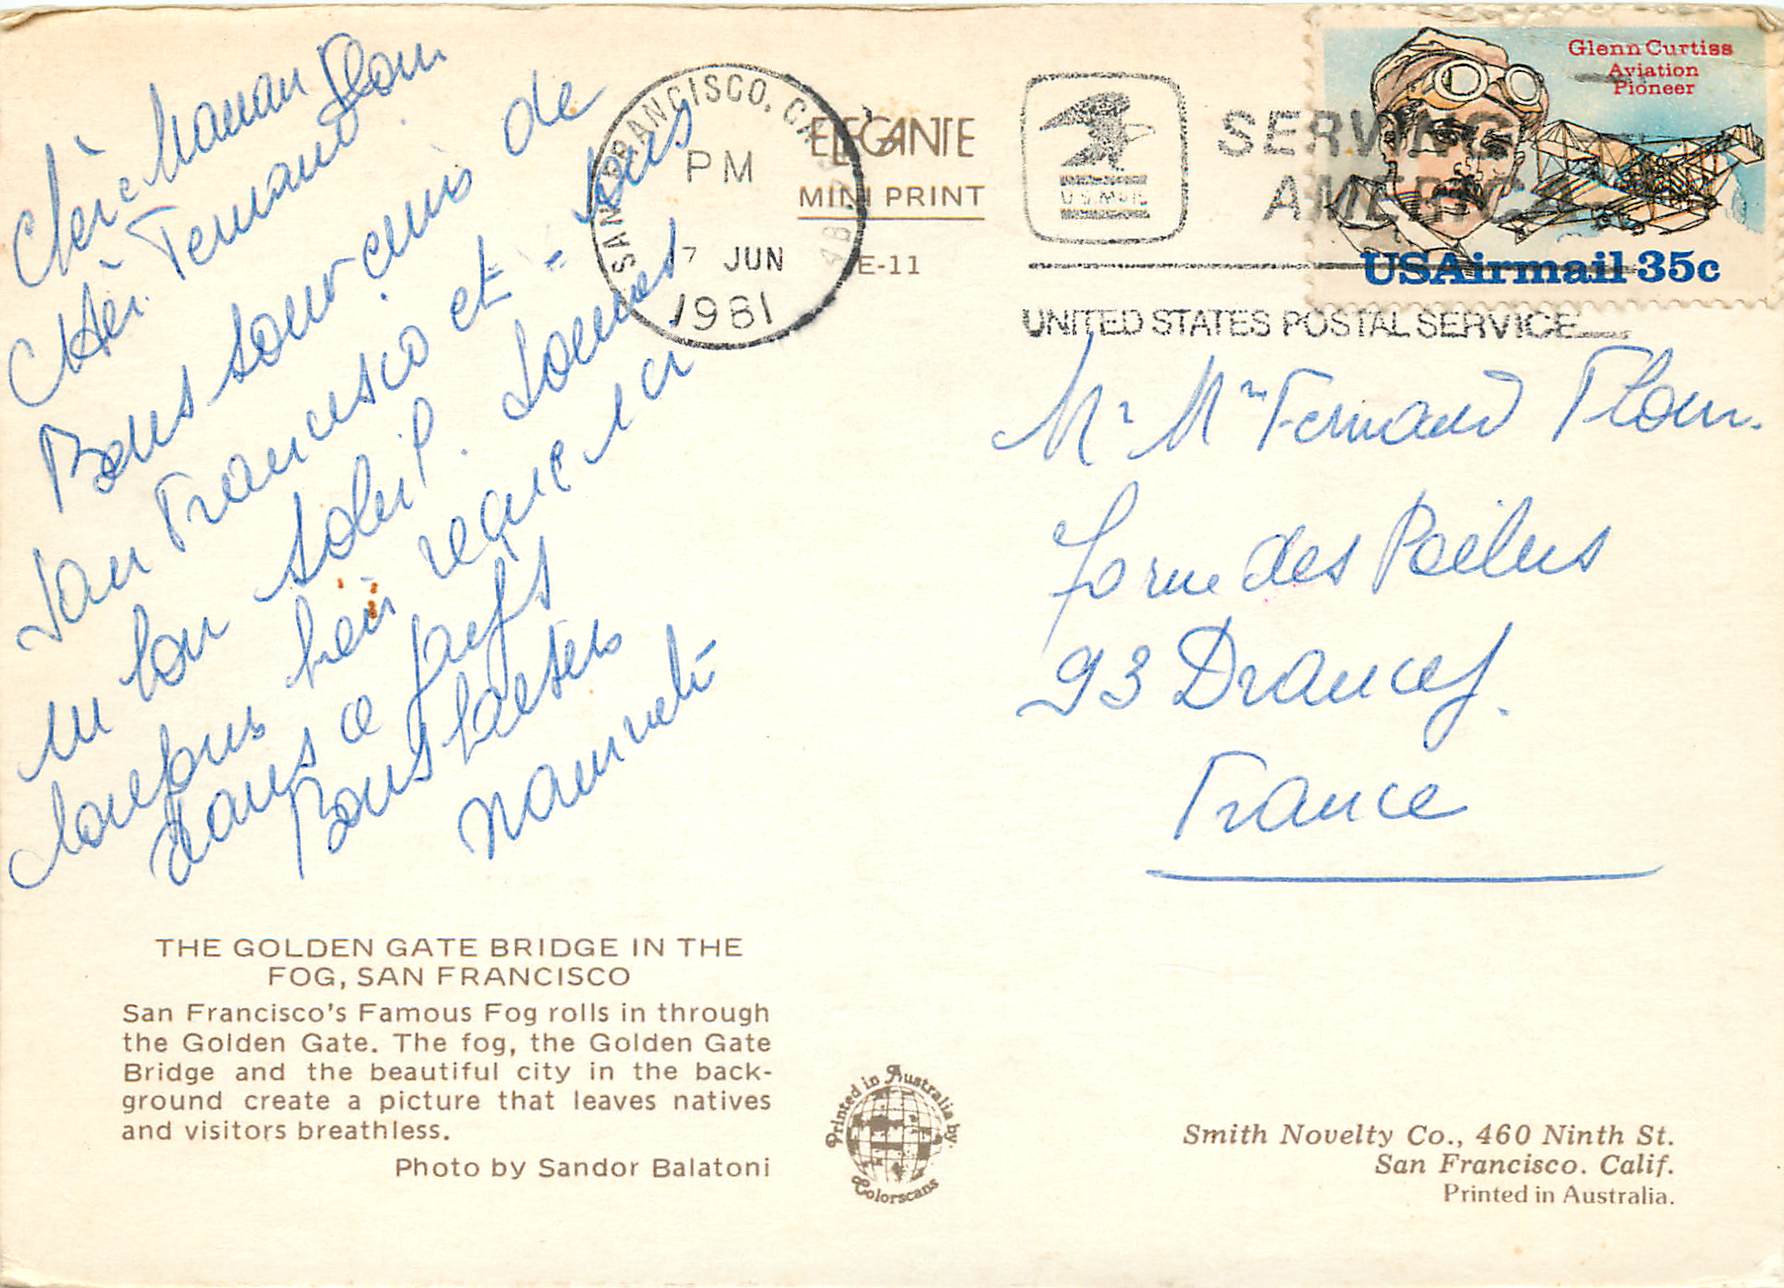 Glenn Curtiss
Aviation
Pioneer
USAirmail 35c
SAN FRANCISCO, CA
PM
7 JUN
1981
U.S.MAIL
SERVING
AMERICA
UNITED STATES POSTAL SERVICE
ELEGANTE
MINI PRINT
E-11
Chère Maman Flour
Cher Fernand.
Bons souvenirs de
San Francisco et
un bon soleil. Sommes
bien
dans ce pays
Bons baisers
Mr Mme Fernand Flour.
rue des Poilus
93 Drancy.
France
THE GOLDEN GATE BRIDGE IN THE
FOG, SAN FRANCISCO
San Francisco's Famous Fog rolls in through
the Golden Gate. The fog, the Golden Gate
Bridge and the beautiful city in the back-
ground create a picture that leaves natives
and visitors breathless.
Photo by Sandor Balatoni
Printed in Australia by
Colorscans
Smith Novelty Co., 460 Ninth St.
San Francisco. Calif.
Printed in Australia.